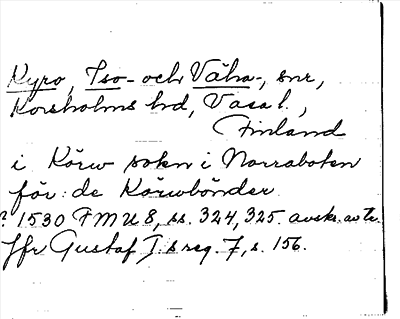 Kyro, Iso- och Vähä-, snr,
Korsholms hd, Vasa l.,
Finland
i Körw sokn i Norraboten
för: de Körwbönder
? 1530 FMU 8, ss. 324, 325. avskr. av tr.
Jfr Gustaf I:s reg. 7, s. 156.